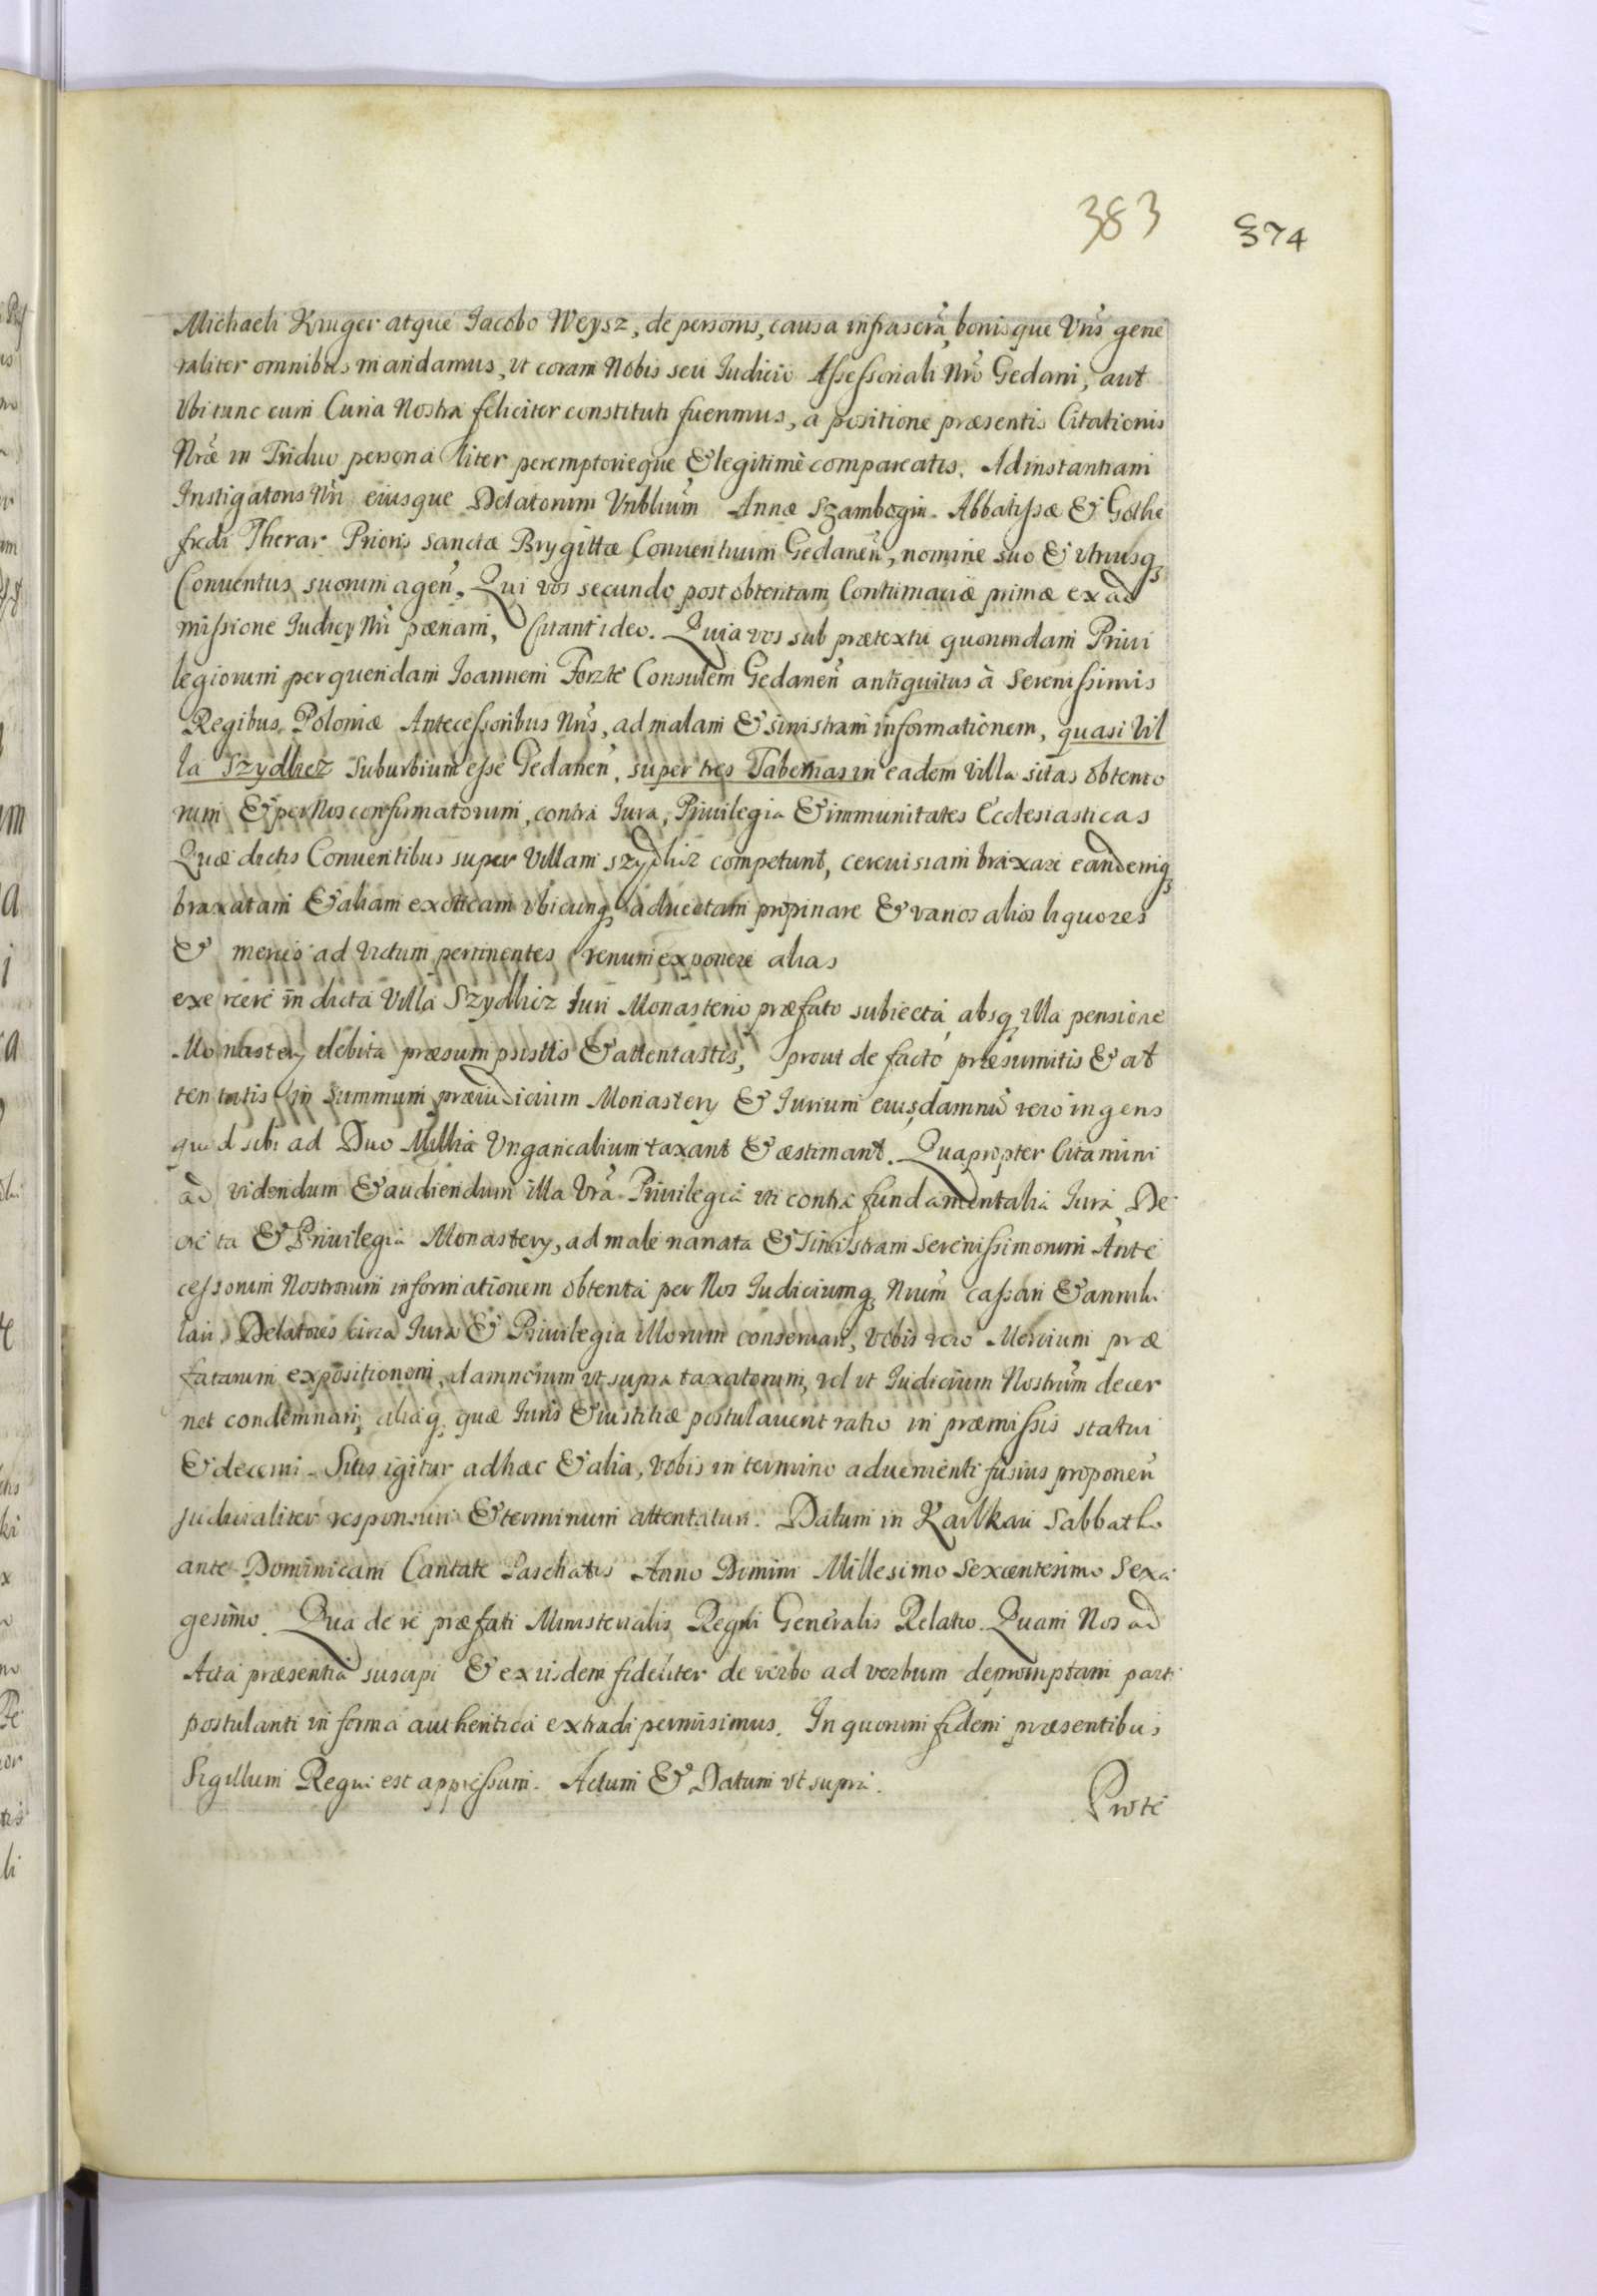 383
374
Michaeli Kruger atque Iacobo Weysz, de personis, causa infrascrã, bonisque Vr̃is gene
raliter omnibus mandamus, ut coram Nobis seu Iudicio Assessoriali Nrõ Gedani, aut
Vbi tunc cum Curia Nostra feliciter constituti fuerimus, a positione præsentis Citationis
Nræ in Triduo persona liter peremptorieque & legitimè compareatis. Ad instantiam
Instigatoris Nri eiusque Delatorum Vnblium̃ Annæ Szambogin. Abbatissæ & Gothe
fredi Therar Prioris Sanctæ Brygittæ Conuentuum Gedaneñ, nomine suo & vtriusq
Conuentus suorum ageñ, Qui vos secundo post obtentam Contumaciæ primæ ex ad
missione Iudicy Nri pœnam, Citant ideo. Quia vos sub prætextu quorundam Priui
legiorum per quendam Ioannem Forzte Consulem Gedaneñ antiquitus à Serenissimis
Regibus Poloniæ Antecessoribus Nris, ad malam & sinistram informationem, quasi Vil
la Szydlicz Suburbium esse Gedaneñ, super tres Tabernas in eadem Villa sitas obtento
rum & per Nos confirmatorum, contra Iura, Priuilegia & immunitates Ecclesiasticas
Quæ dictis Conuentibus super Villam Szydlicz competunt, cereuisiam braxare eandemq
braxatam & aliam exoticam vbicunq aduectam propinare & varios alios liquores
& merces ad victum pertinentes venum exponere alias
exercere in dicta Villa Szydlicz Iuri Monasterio præfato subiecta, absq illa pensione
Monastery debita præsumpsistis & attentastis, prout de facto præsumitis & at
tentatis in summum præiudicium Monastery & Iurium eius, damnũ vero ingens
quod sibi ad Duo Millia Vngaricalium taxant & æstimant. Quapropter Citamini
ad videndum & audiendum illa Vrã Priuilegia uti contra fundamentalia Iura De
cre ta & Priuilegia Monastery, ad male narrata & Sinistram Serenissimorum Ante
cessorum Nostrorum informationem obtenta per Nos Iudiciumq Nrum̃ cassari & annihi
lari, Delatores circa Iura & Priuilegia illorum conseruari, vobis vero Mercium præ
fatarum expositionem, damnorum ut supra taxatorum, vel ut Iudicium Nostrum decer
net condemnari, aliaq, quæ Iuris & iustitiæ postulauerit ratio in præmissis statui
& decerni. Sitis igitur ad hæc & alia, vobis in termino aduenienti fusius proponeñ
Iudicialiter responsuri & terminum attentaturi. Datum in Karlkau Sabbatho
ante Dominicam Cantate Paschatis Anno Domini Millesimo Sexcentesimo Sexa
gesimo. Qua de re præfati Ministerialis Regni Generalis Relatio. Quam Nos ad
Acta præsentia suscipi & ex iisdem fideliter de verbo ad verbum depromptam parti
postulanti in forma authentica extradi permisimus. In quorum fidem præsentibus
Sigillum Regni est appressum. Actum & Datum ut supra.
Prote